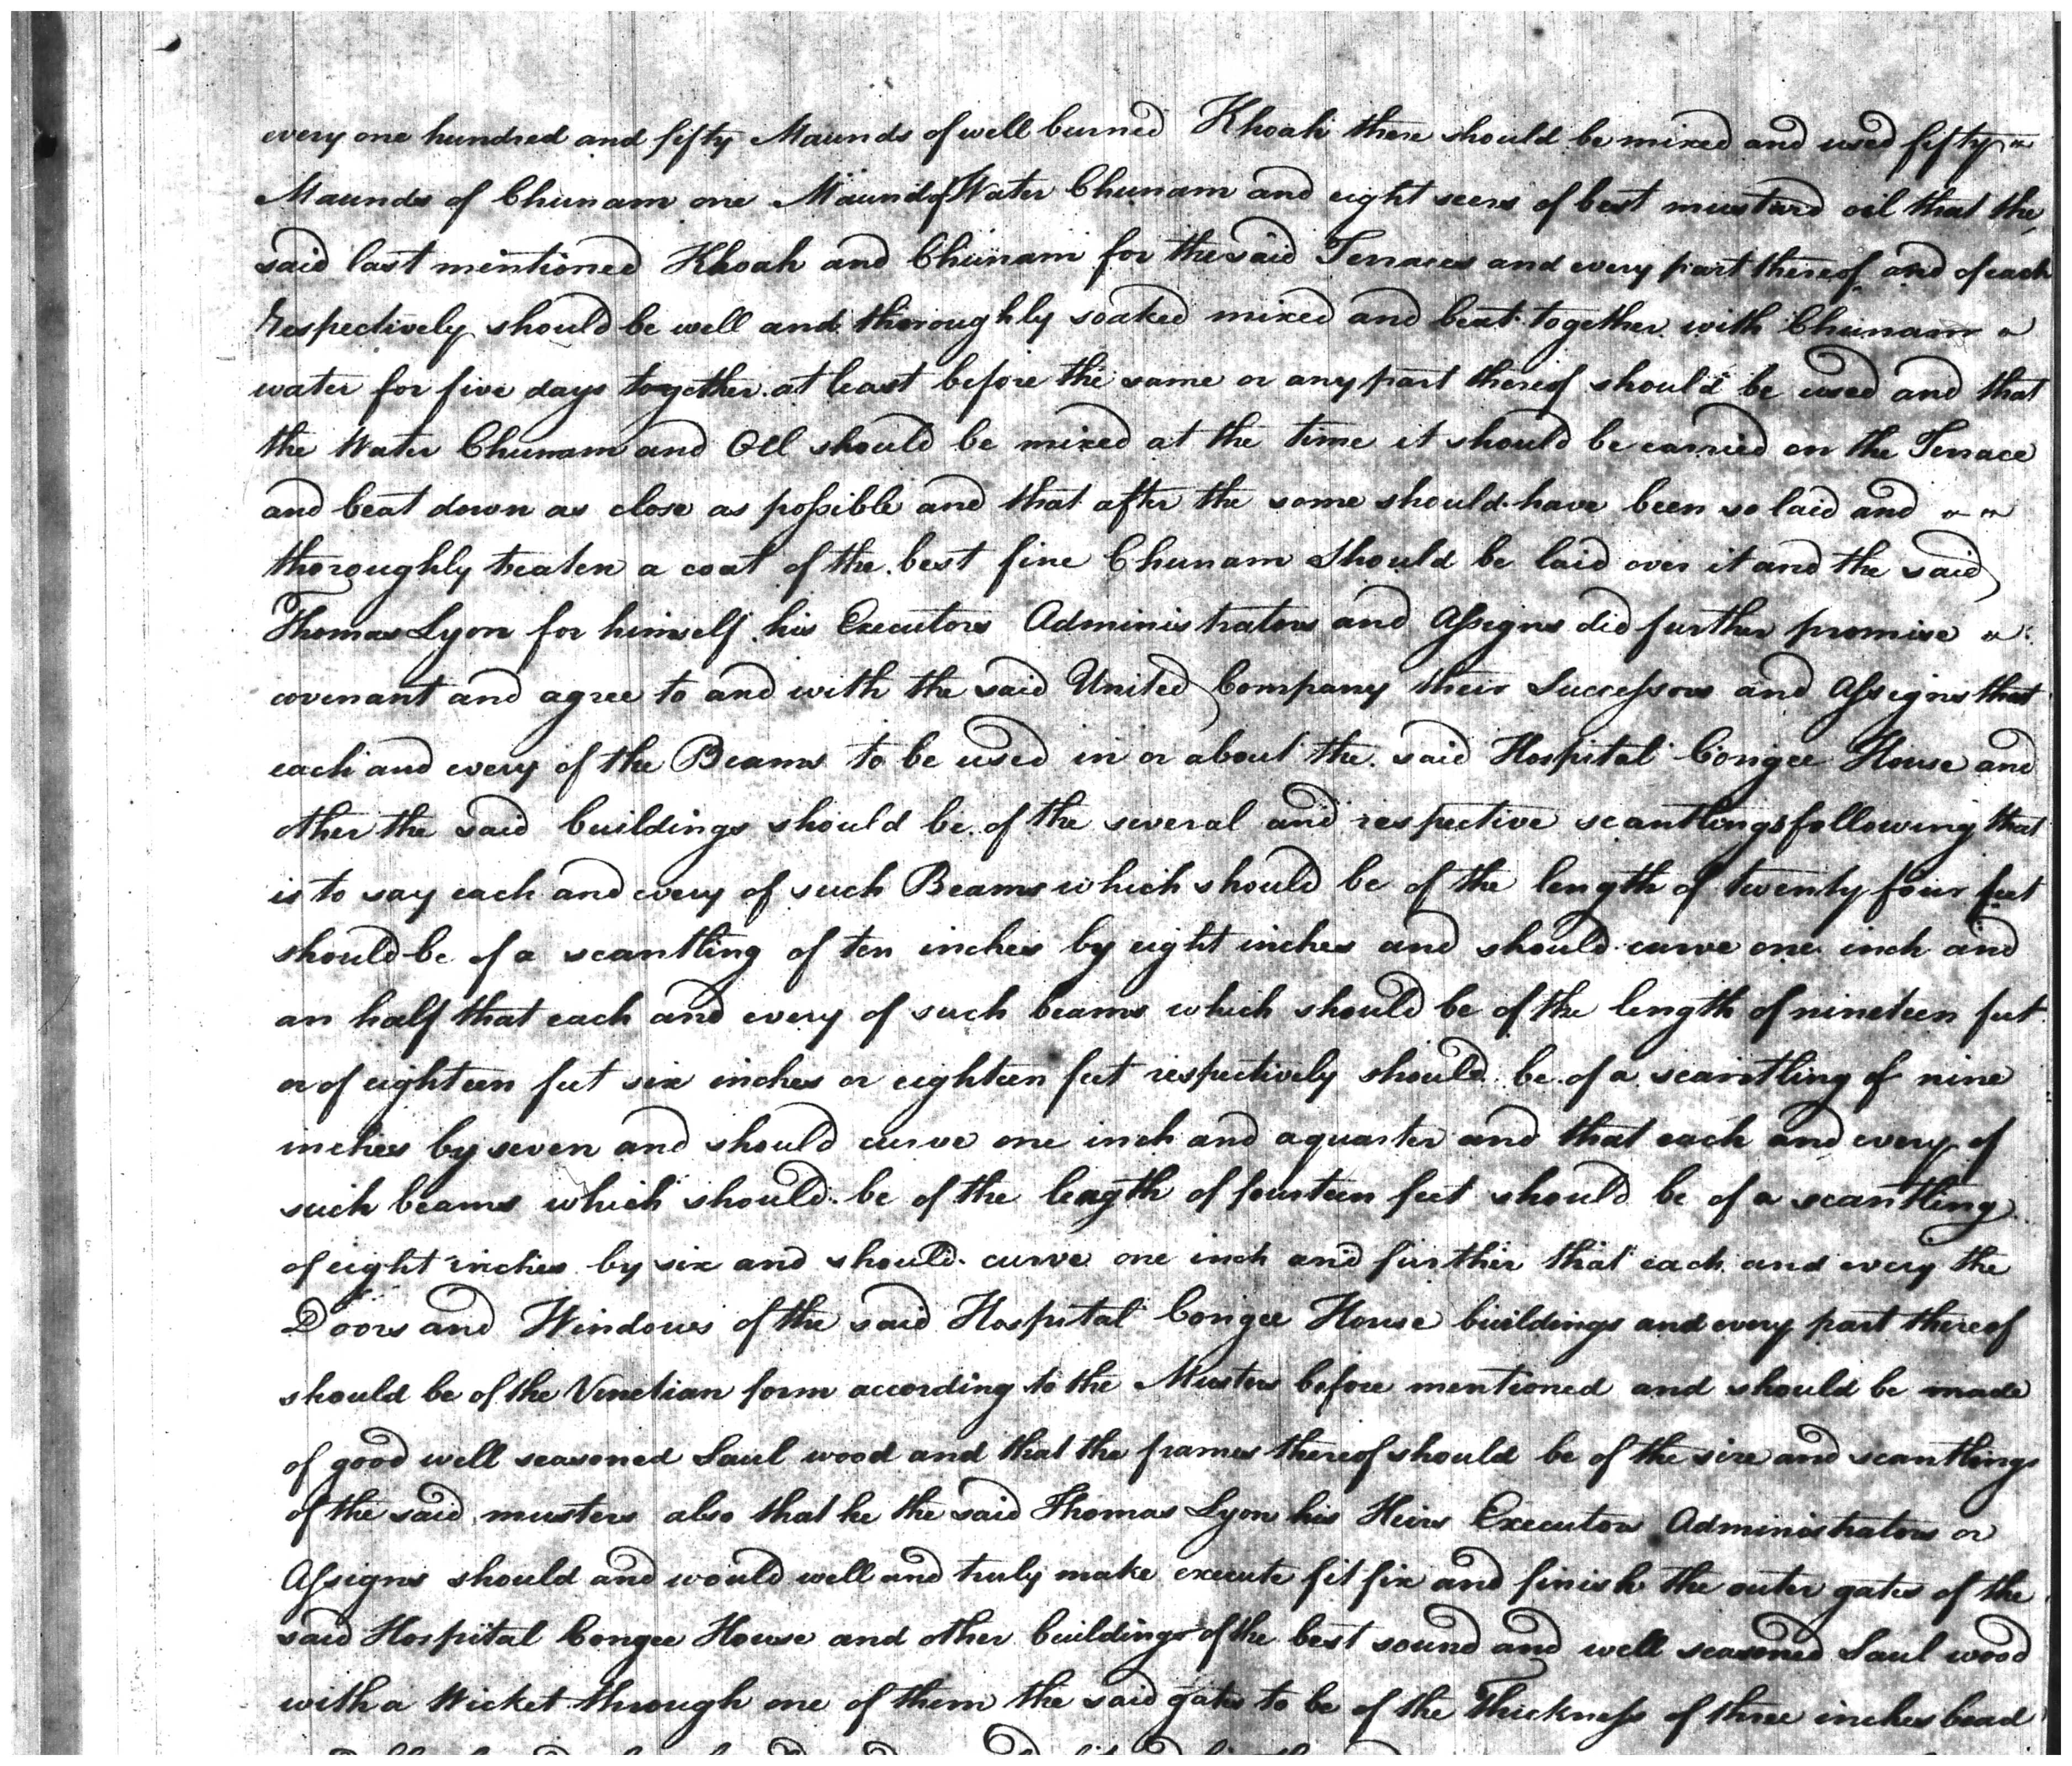 every one hundred and fifty Maunds of well burned Khoah there should be mixed and used fifty
Maunds of Chunam one Maund of Water Chunam and eight seers of best mustard oil that the
said last mentioned Khoah and Chunam for the said Terraces and every part thereof and of each
Respectively should be well and thoroughly soaked mixed and beat together with Chunam
water for five days together at least before the same or any part thereof should be used and that
the Water Chunam and Oil should be mixed at the time it should be carried on the Terrace
and beat down as close as possible and that after the same should have been so laid and
thoroughly beaten a coat of the best fine Chunam Should be laid over it and the said
Thomas Lyon for himself his Executors Administrators and Assigns did further promise
covenant and agree to and with the said United Company their Successors and Assigns that
each and every of the Beams to be used in or about the said Hospital Congee House and
other the said buildings should be of the several and respective scantlings following that
is to say each and every of such Beams which should be of the length of twenty four feet
should be of a scantling of ten inches by eight inches and should curve one inch and
an half that each and every of such beams which should be of the length of nineteen feet
or of eighteen feet six inches or eighteen feet respectively should be of a scantling of nine
inches by seven and should curve one inch and a quarter and that each and every of
such beams which should be of the length of fourteen feet should be of a scantling
of eight inches by six and should curve one inch and further that each and every the
Doors and Windows of the said Hospital Congee House buildings and every part thereof
should be of the Venetian form according to the Musters before mentioned and should be made
of good well seasoned Saul wood and that the frames thereof should be of the size and scantlings
of the said musters also that he the said Thomas Lyon his Heirs Executors Administrators or
Assigns should and would well and truly make execute fit fix and finish the outer gates of the
said Hospital Congee House and other buildings of the best sound and well seasoned Saul wood
with a Wicket through one of them the said gates to be of the Thickness of three inches bead